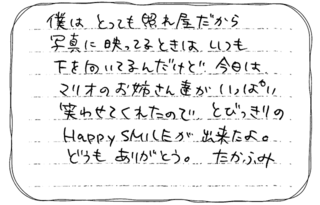 僕は とっても照れ屋だから
写真に映ってるときは いつも
下を向いてるんだけど 今日は、
マリオのお姉さん達が いっぱい
笑わせてくれたので、とびっきりの
HAPPY SMILEが出来たよ。
どうも ありがとう。 たかふみ